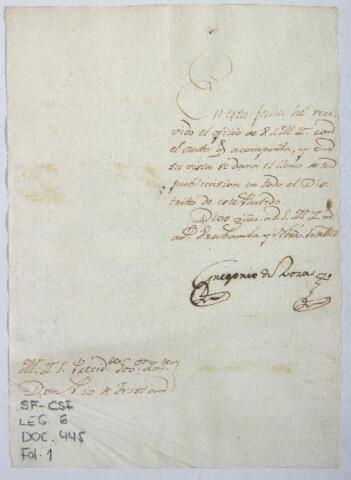 En esta fha he reci
vido el oficio de V.S.M.Y. con
el auto q̃ acompaña, y en
su vista se dará el lleno de su
publicasion en todo el Dis
trito de este Partido.
Dios gũe. a V.S.M.Y. m.
a.ˢ Urubamba y
Gregorio de Loza
M. Y. S. Presid.ᵗᵉ Gov.ᵒʳ
Don Pio de Tristan
SF-CSF
LEG. 6
DOC. 445
Fol. 1